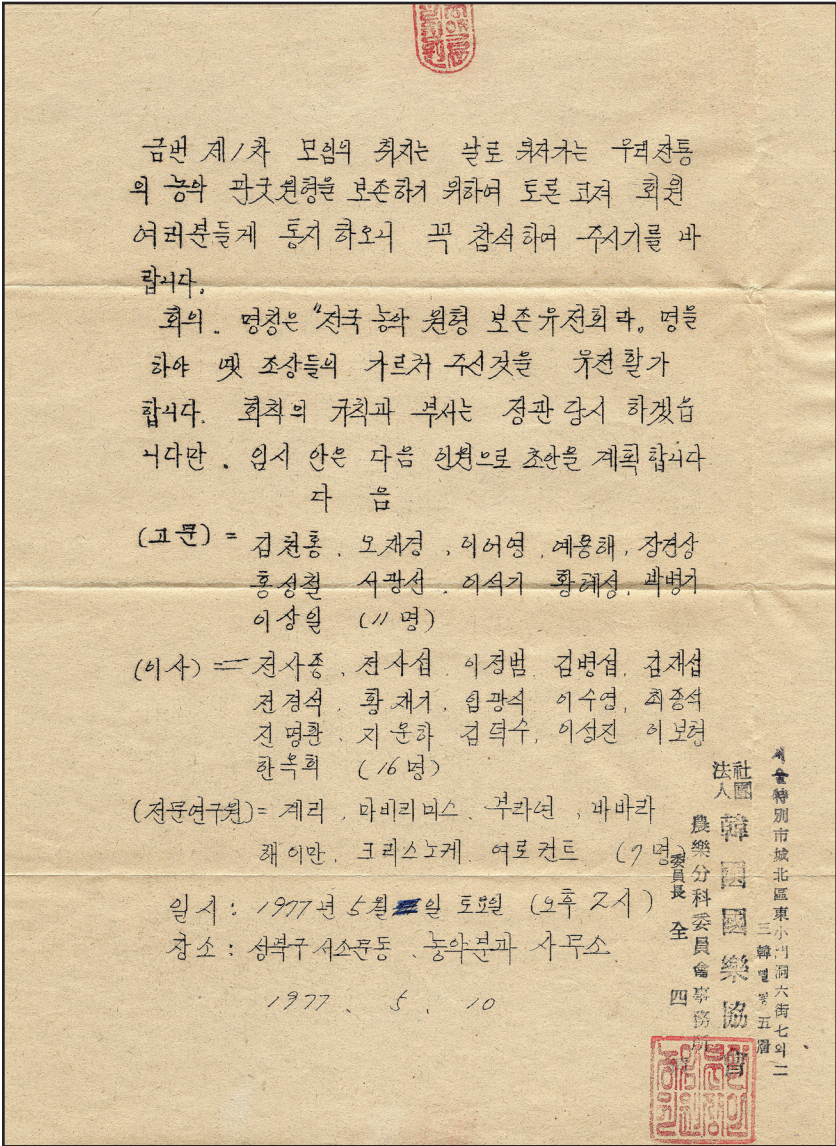 금번 제1차 모임의 취지는 날로 퇴져가는 우리전통
의 농악 판굿원형을 보존하기 위하여 토론 코져 회원
여러분들게 통지 하오니 꼭 참석하여 주시기를 바
랍니다.
회의. 명칭은 "전국 농악 원형 보존 유전회라. 명을
하야 옛 조상들의 가르쳐 주신것을 유전 할가
합니다. 회칙의 규칙과 부서는 정관 당시 하겠습
니다만. 임시 안은 다음 인원으로 초안을 계획합니다
다 음
(고문) = 김천흥. 오재경. 이어령. 예용해. 장건상
홍성철 서광선. 이석기 황혜성. 박병기
이상일 (11명)
(이사) = 전사종. 전사섭. 이정범. 김병섭. 김재섭
전경석. 황재기. 임광식 이수영. 최종석
진명환. 지운하 김덕수. 이성진 이보형
한옥희 (16명)
(전문연구원) = 계리. 마비리미스. 부라년. 바바라
해이만. 크리스노케. 여로컨트 (7명)
일시: 1977년 5월 일 토요일 (오후 2시)
장소: 성북구 서소문동. 농악분과 사무소.
1977. 5. 10
서울特別市城北區東小門洞六街七의二
三韓빌딩五層
社團法人 韓國國樂協會
農樂分科委員會事務所
委員長 全四